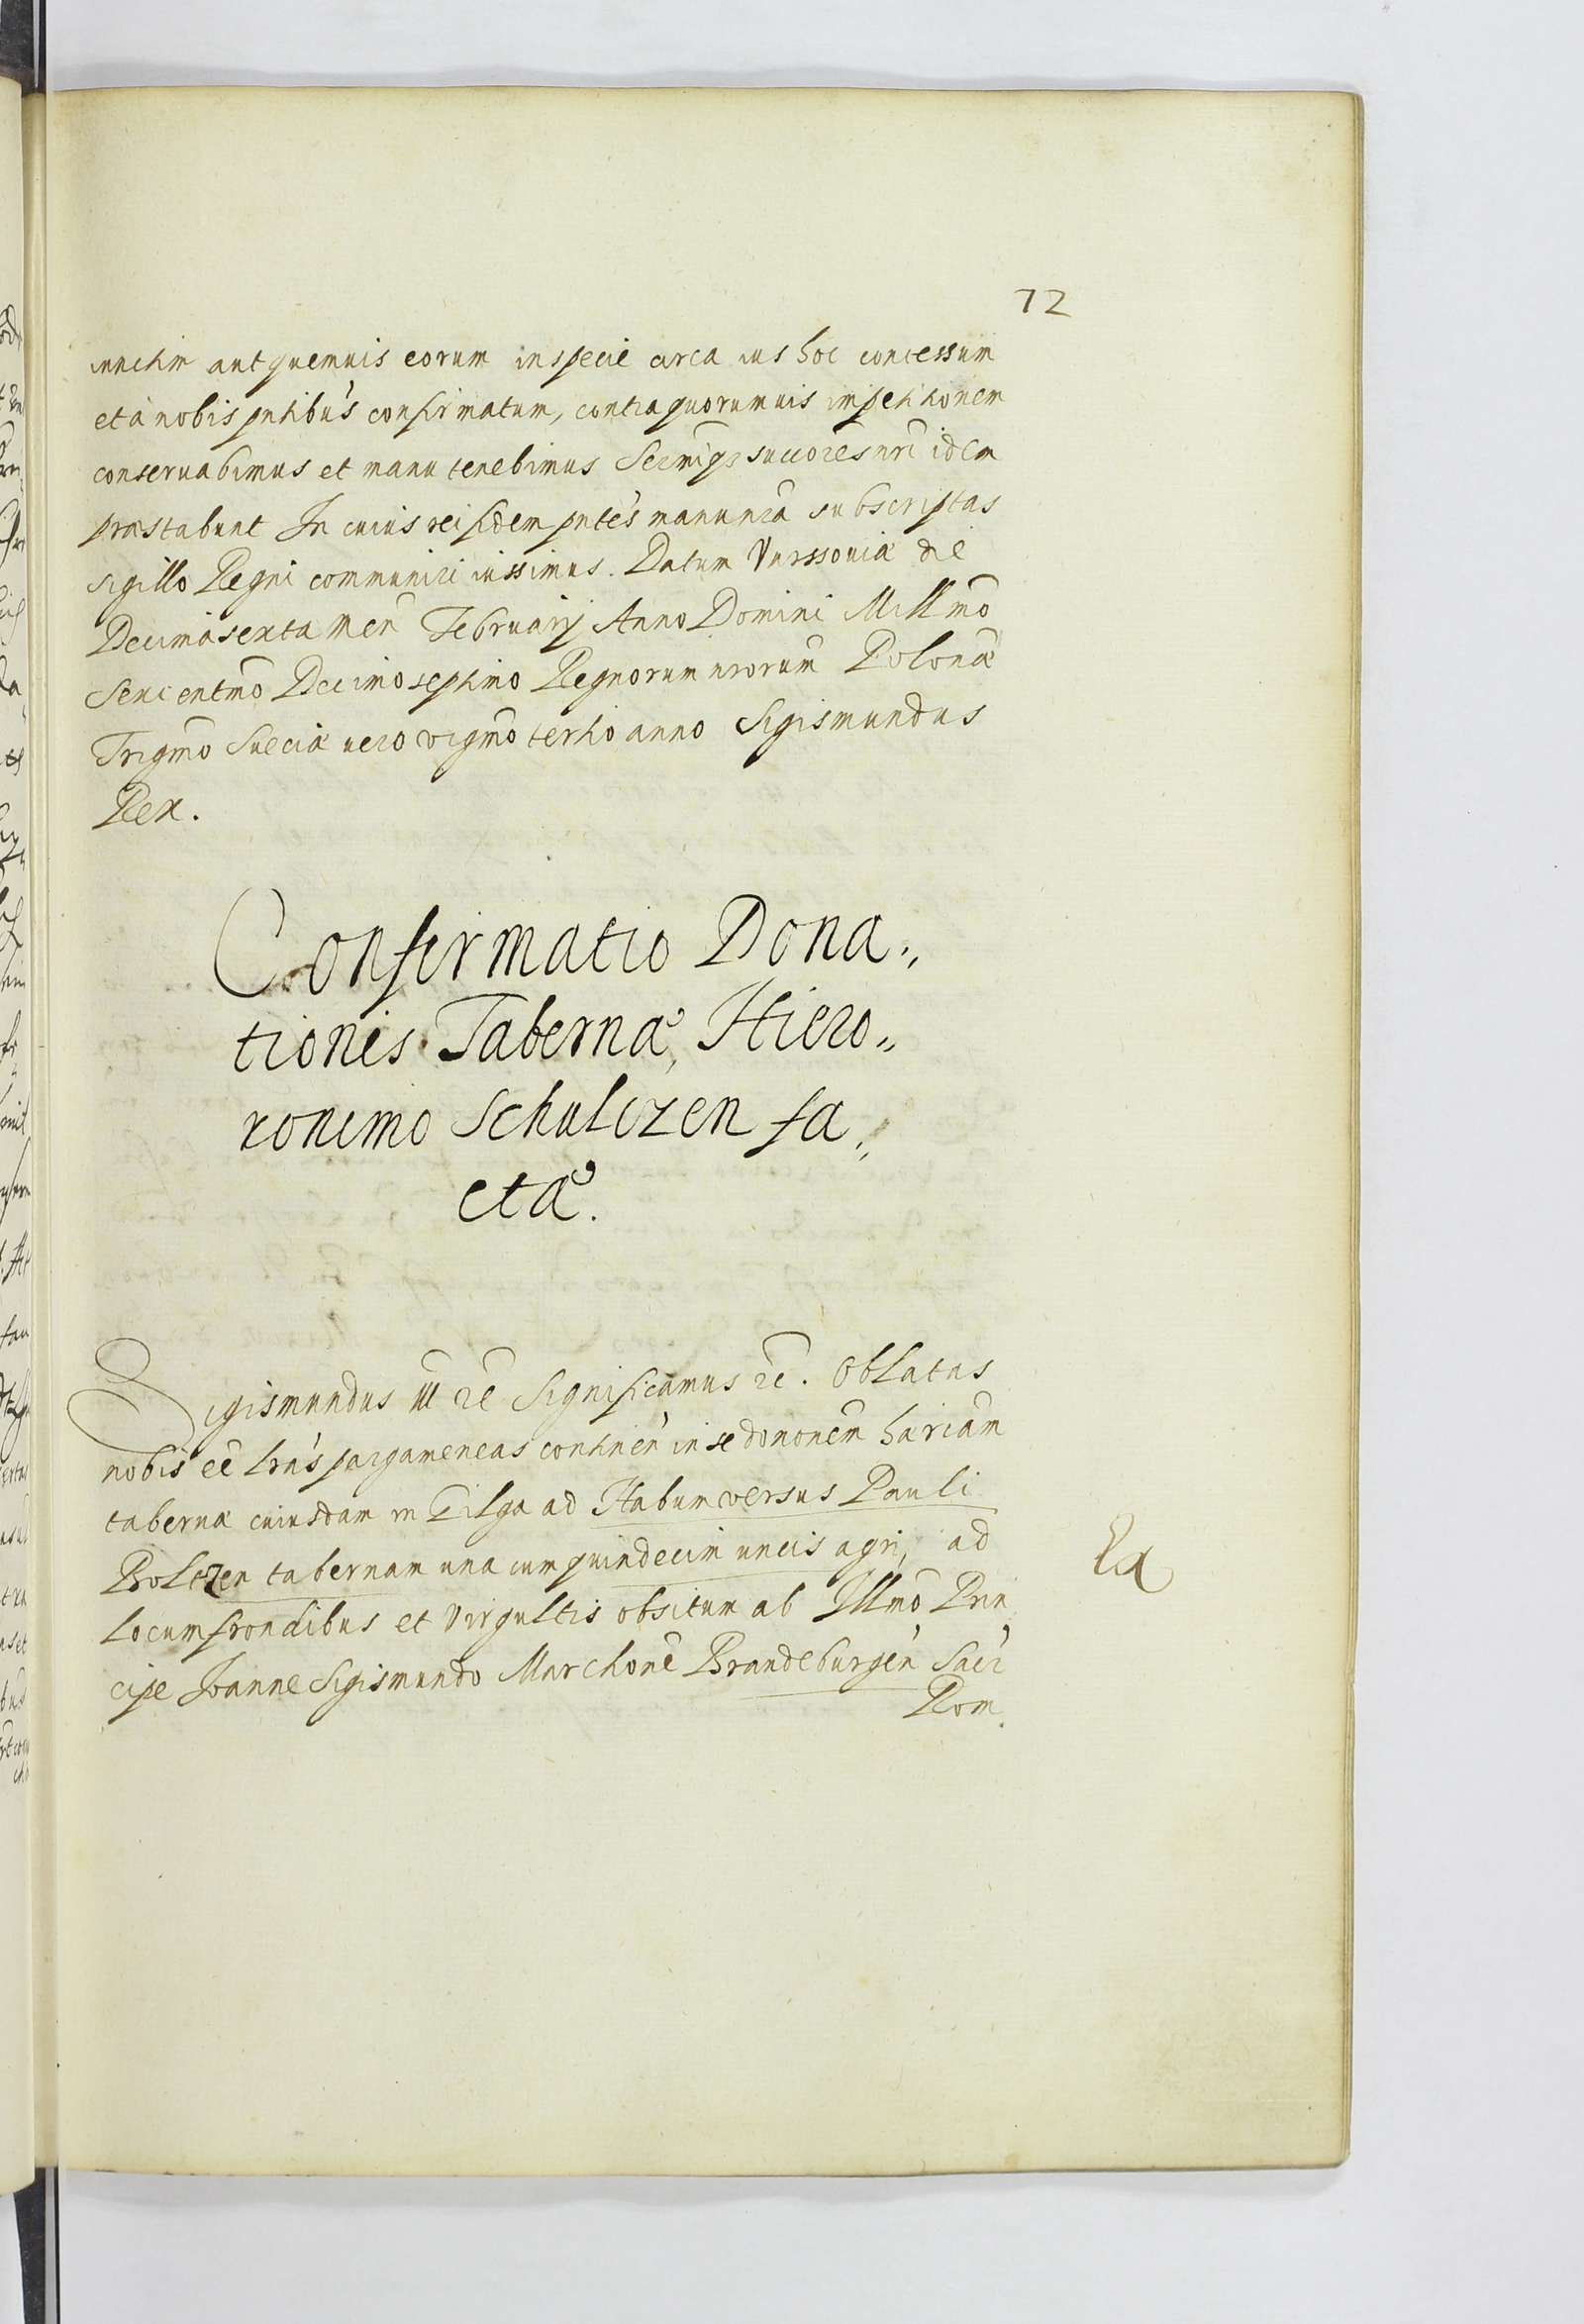 72
iunctim aut quemuis eorum inspecie circa ius hoc concessum
et à nobis pntibus confirmatum, contra quorumuis impetitionem
conseruabimus et manu tenebimus Sermiqz succores nri idem
præstabunt In cuius rei fidem pntes manu nra subscriptas
sigillo Regni communiri iussimus. Datum Varssouiæ die
Decima sexta Men Februarij Anno Domini Millmo
Sexcentmo Decimo septimo Regnorum nrorum Polonæ
Trigmo Sueciæ uero vigmo tertio anno Sigismundus
Rex.
Confirmatio Dona„
tionis Tabernæ, Hiero„
ronimo Schulczen fa„
ctæ.
Sigismundus III etc Significamus etc. Oblatas
nobis ee lras pargameneas continen in se dononem
tabernæ cuiusdam in Tilga ad Habum versus Pauli
Boltzen tabernam una cum quindecim uncis agri, ad
locum frondibus et virgultis obsitum ab Illmo Prin
cipe Joanne Sigismundo Marchone Brandeburgen Sacr
Rom.